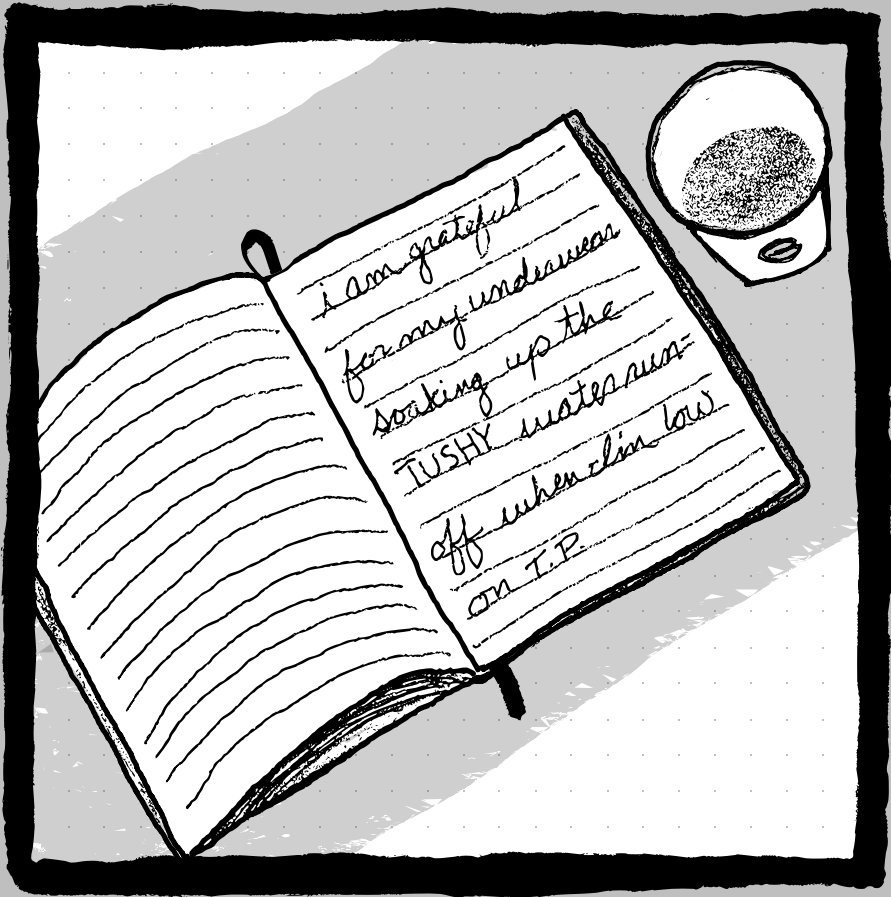 i am grateful
for my underwear
soaking up the
TUSHY water run-
off when i'm low
on T.P.